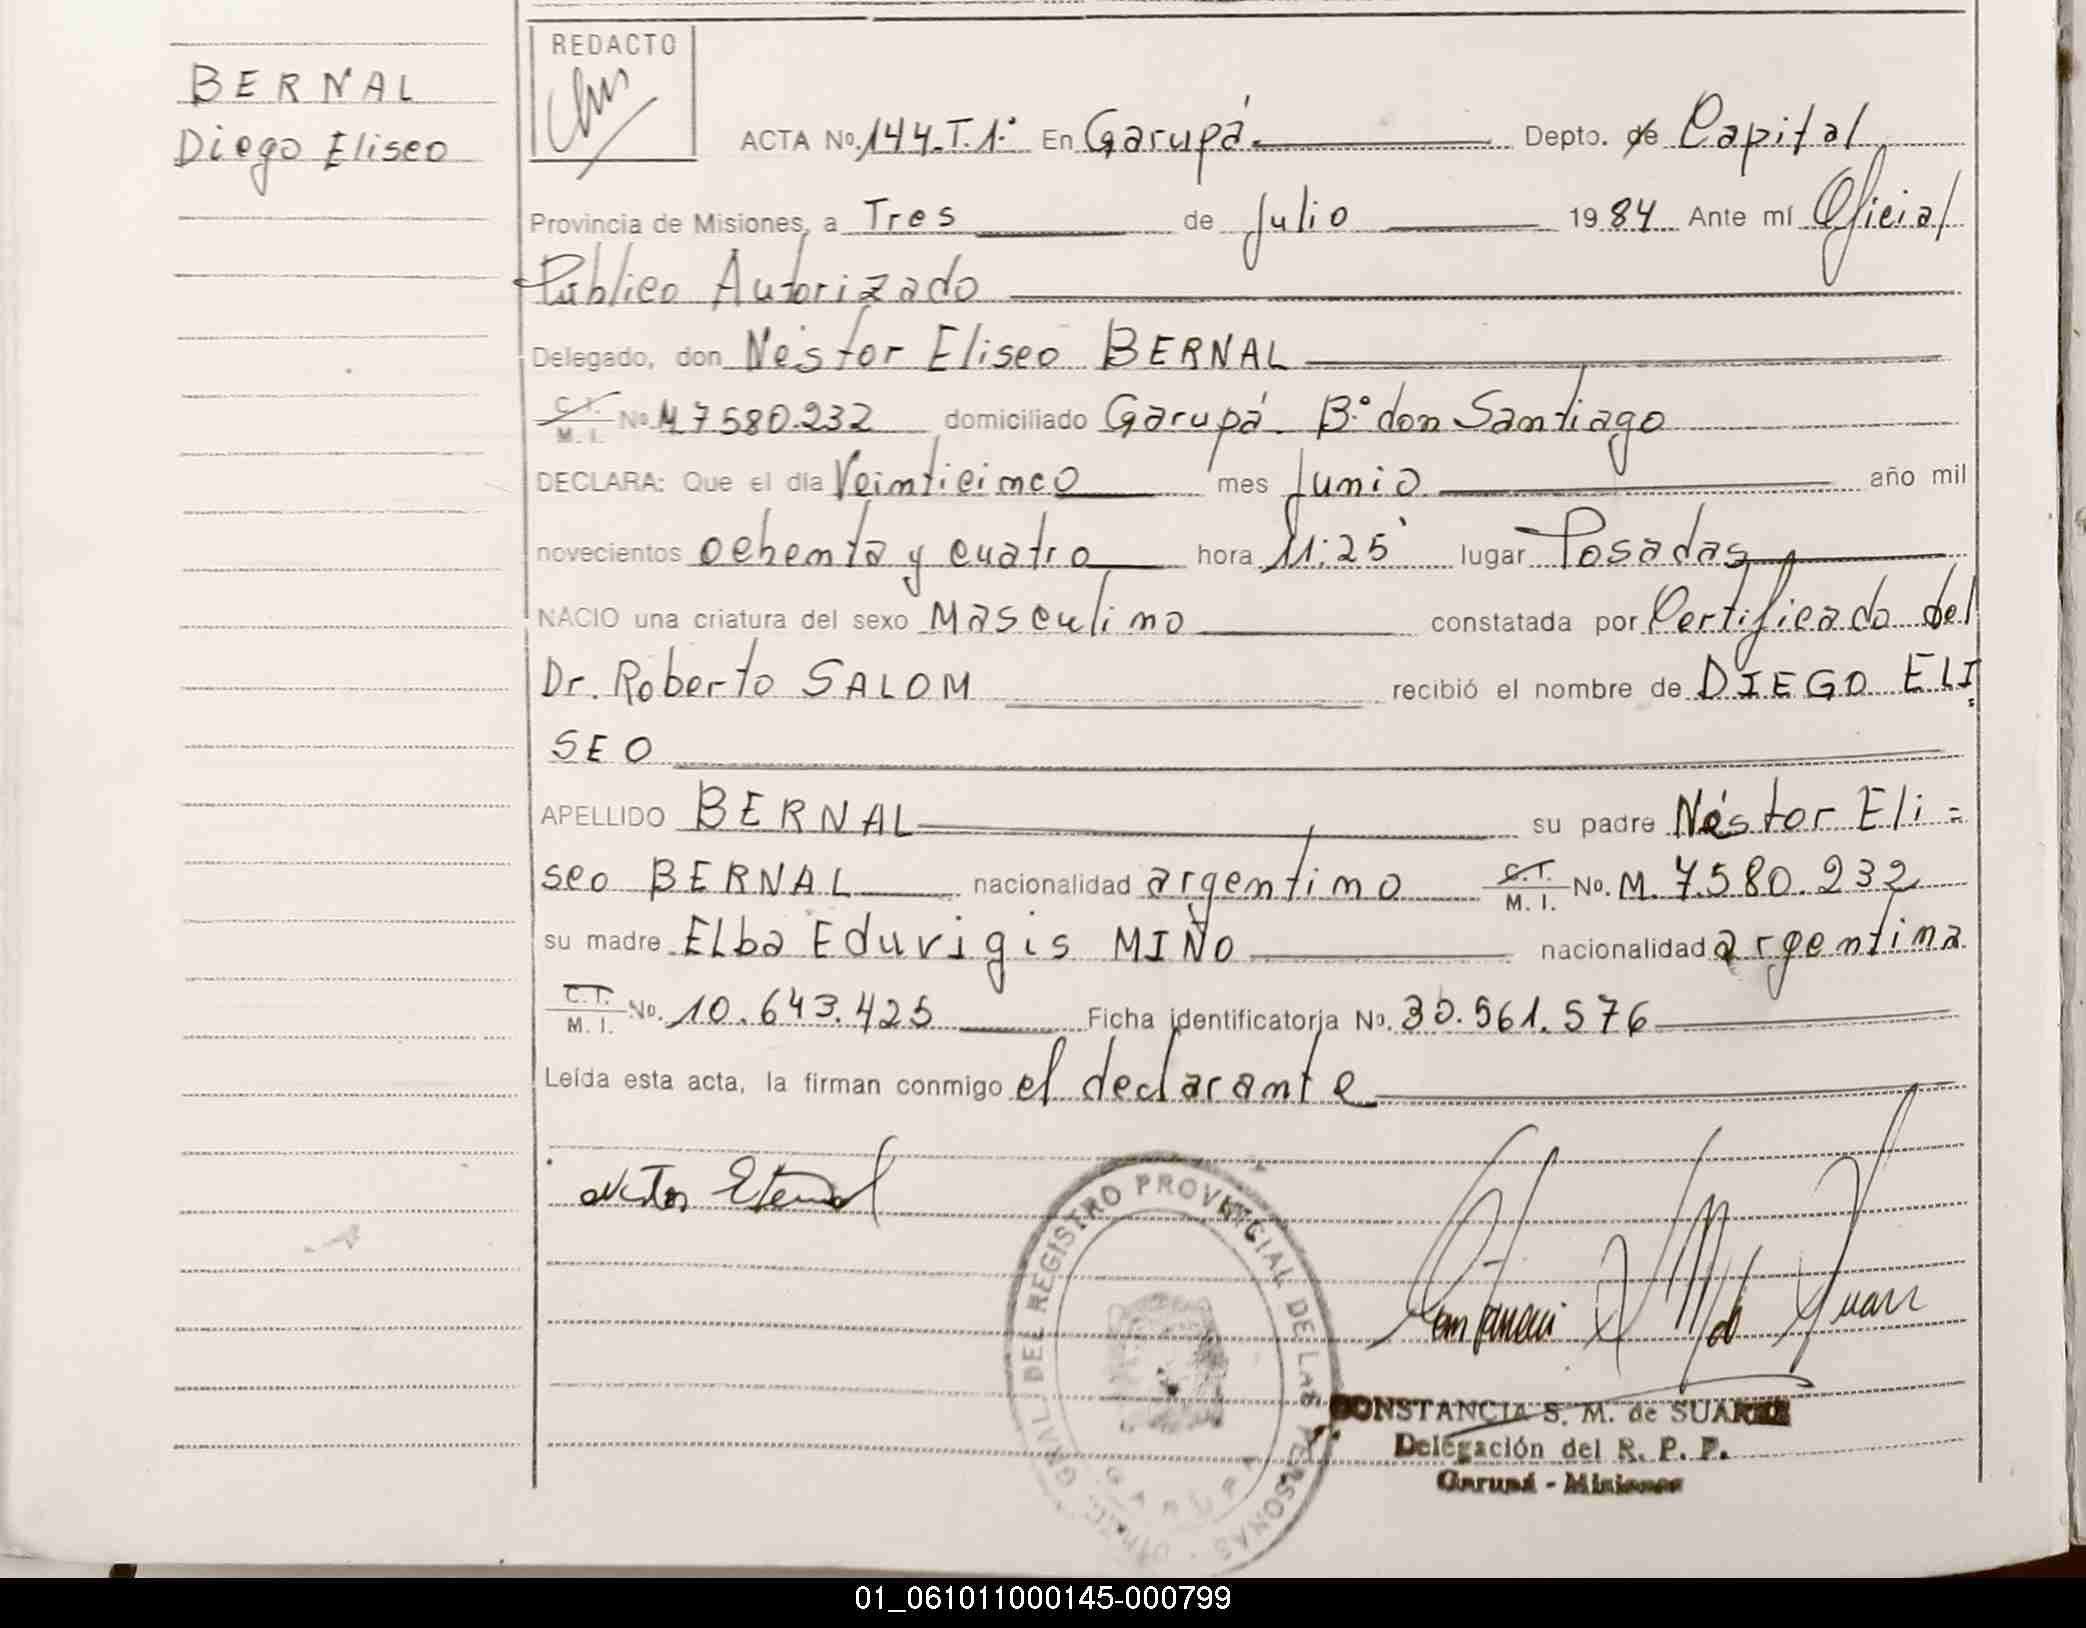 BERNAL
Diego Eliseo
REDACTO
ACTA No. 144. T. 1.° En Garupá. Depto. de Capital
Provincia de Misiones, a Tres de Julio 1984 Ante mí Oficial
Público Autorizado
Delegado, don Néstor Eliseo BERNAL
C. I. M. I. No. M 7580.232 domiciliado Garupá. B.° don Santiago
DECLARA: Que el día Veinticinco mes Junio año mil
novecientos ochenta y cuatro hora 11:25 lugar Posadas
NACIO una criatura del sexo Masculino constatada por Certificado del
Dr. Roberto SALOM recibió el nombre de DIEGO ELI
SEO
APELLIDO BERNAL su padre Néstor Eli=
seo BERNAL nacionalidad argentino C.T. M. I. No. M. 7.580.232
su madre ELba Eduvigis MIÑO nacionalidad argentina
C.T. M. I. No. 10.643.425 Ficha identificatoria No. 30.561.576
Leída esta acta, la firman conmigo el declarante
DEL REGISTRO PROVINCIAL DE LAS PERSONAS
GARUPA
CONSTANCIA S. M. de SUAREZ
Delegación del R. P. P.
Garupá - Misiones
01_061011000145-000799